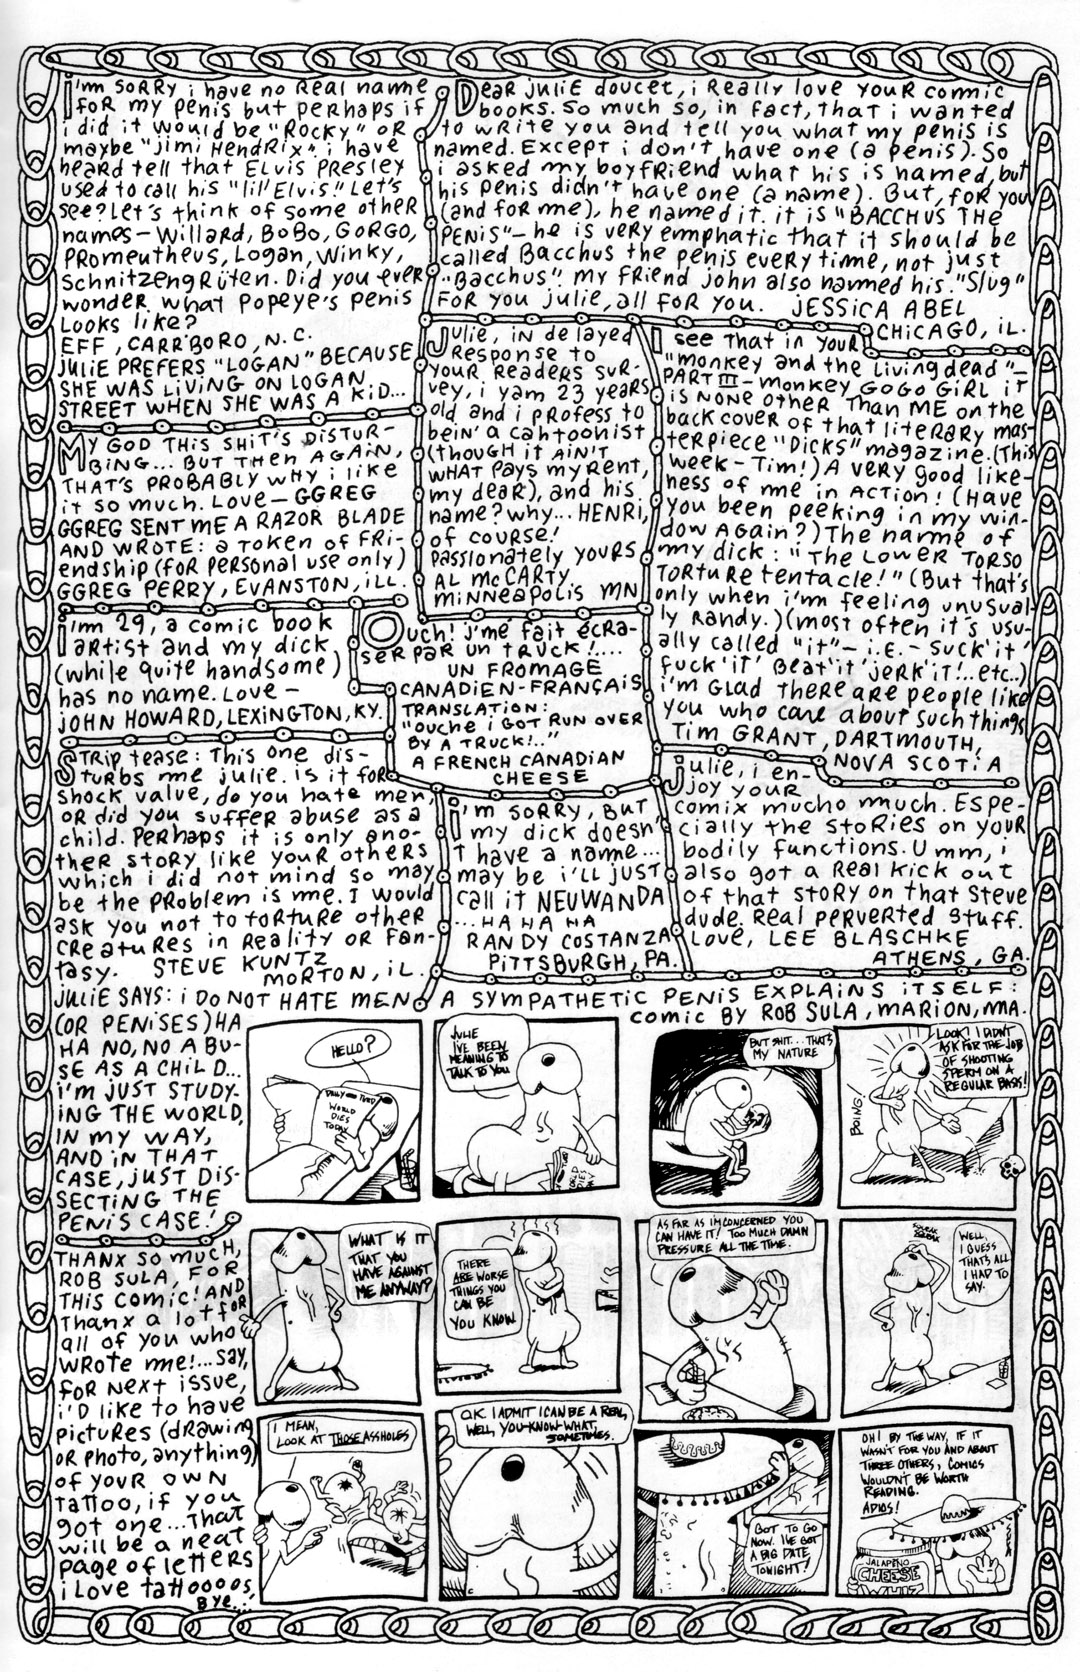 i'm sorry i have no real name
for my penis but perhaps if
i did it would be "Rocky" or
maybe "jimi Hendrix". i have
heard tell that Elvis Presley
used to call his "lil' Elvis." Let's
see? let's think of some other
names — Willard, BoBo, GORGO,
Promeutheus, Logan, Winky,
Schnitzengrüten. Did you ever
wonder what Popeye's penis
looks like?
EFF, CARRBORO, N.C.
JULIE PREFERS "LOGAN" BECAUSE
SHE WAS LIVING ON LOGAN
STREET WHEN SHE WAS A KID...
MY GOD THIS SHIT'S DISTUR-
BING... BUT THEN AGAIN,
THAT'S PROBABLY WHY i like
it so much. Love — GGREG
GGREG SENT ME A RAZOR BLADE
AND WROTE: a token of fri-
endship (for personal use only)
GGREG PERRY, EVANSTON, ILL.
i'm 29, a comic book
artist and my dick
(while quite handsome)
has no name. Love —
JOHN HOWARD, LEXINGTON, KY.
Strip tease: This one dis-
turbs me julie. is it for
shock value, do you hate men,
or did you suffer abuse as a
child. Perhaps it is only ano-
ther story like your others
which i did not mind so may
be the problem is me. I would
ask you not to torture other
creatures in reality or fan-
tasy. STEVE KUNTZ
MORTON, iL.
JULIE SAYS: i DO NOT HATE MEN
(OR PENISES) HA
HA NO, NO ABU-
SE AS A CHILD...
i'm JUST STUDY-
ING THE WORLD,
IN MY WAY,
AND IN THAT
CASE, JUST DIS-
SECTING THE
PENIS CASE!
THANX SO much,
ROB SULA, FOR
THIS COMIC! AND
Thanx a lot for
all of you who
wrote me!... say,
for next issue,
i'd like to have
pictures (drawing
or photo, anything)
of your own
tattoo, if you
got one... that
will be a neat
page of letters
i Love tattoooos,
Bye...
Dear julie doucet, i really love your comic
books. So much so, in fact, that i wanted
to write you and tell you what my penis is
named. Except i don't have one (a penis). So
i asked my boyfriend what his is named, but
his penis didn't have one (a name). But, for you
(and for me), he named it. it is "BACCHUS THE
PENIS" — he is very emphatic that it should be
called Bacchus the penis every time, not just
"Bacchus". my friend john also named his. "Slug"
For you julie, all for you. JESSICA ABEL
CHICAGO, iL.
Julie, in delayed
response to
your readers sur-
vey, i yam 23 years
old and i profess to
bein' a cahtoonist
(though it AIN'T
WHAT pays my rent,
my dear), and his
name? why... HENRI,
of course!
Passionately yours
AL McCARTY
Minneapolis MN
I see that in your
"monkey and the living dead" —
PART III — monkey GOGO GiRL iT
is NONE other than ME on the
back cover of that literary mas-
terpiece "Dicks" magazine. (This
week — Tim!) A very good like-
ness of me in Action! (Have
you been peeking in my win-
dow again?) The name of
my dick: "The Lower Torso
Torture tentacle!" (But that's
only when i'm feeling unusual-
ly randy.) (most often it's usu-
ally called "it" — i.e. — suck 'it'
fuck 'it' Beat 'it' jerk it!... etc..)
i'm glad there are people like
you who care about such things
Tim GRANT, DARTMOUTH,
NOVA SCOTIA
Ouch! j'me fait écra-
ser par un truck!....
UN FROMAGE
CANADIEN-FRANÇAIS
TRANSLATION:
"OUCHE i GOT RUN OVER
BY A TRUCK!.."
A FRENCH CANADIAN
CHEESE
i'm sorry, but
my dick doesn'
t have a name...
may be i'll just
call it NEUWANDA
...HA HA HA
RANDY COSTANZA
PITTSBURGH, PA.
julie, i en-
joy your
comix mucho much. Espe-
cially the stories on your
bodily functions. Umm, i
also got a real kick out
of that story on that Steve
dude. Real perverted stuff.
Love, LEE BLASCHKE
ATHENS, GA.
A SYMPATHETIC PENIS EXPLAINS iTSELF:
comic BY ROB SULA, MARION, MA.
HELLO?
DAILY TURD
WORLD
DIES
TODAY
JULIE
I'VE BEEN
MEANING TO
TALK TO YOU
BUT SHIT... THAT'S
MY NATURE
LOOK! I DIDN'T
ASK FOR THE JOB
OF SHOOTING
SPERM ON A
REGULAR BASIS!
BOING!
WHAT IS IT
THAT YOU
HAVE AGAINST
ME ANYWAY?
THERE
ARE WORSE
THINGS YOU
CAN BE
YOU KNOW
AS FAR AS I'M CONCERNED YOU
CAN HAVE IT! TOO MUCH DAMN
PRESSURE ALL THE TIME.
WELL,
I GUESS
THAT'S ALL
I HAD TO
SAY.
I MEAN,
LOOK AT THOSE ASSHOLES
O.K. I ADMIT I CAN BE A REAL,
WELL, YOU-KNOW-WHAT,
SOMETIMES.
GOT TO GO
NOW. I'VE GOT
A BIG DATE
TONIGHT!
OH! BY THE WAY, IF IT
WASN'T FOR YOU AND ABOUT
THREE OTHERS, COMICS
WOULDN'T BE WORTH
READING.
ADIOS!
JALAPEÑO
CHEESE
WHIZ